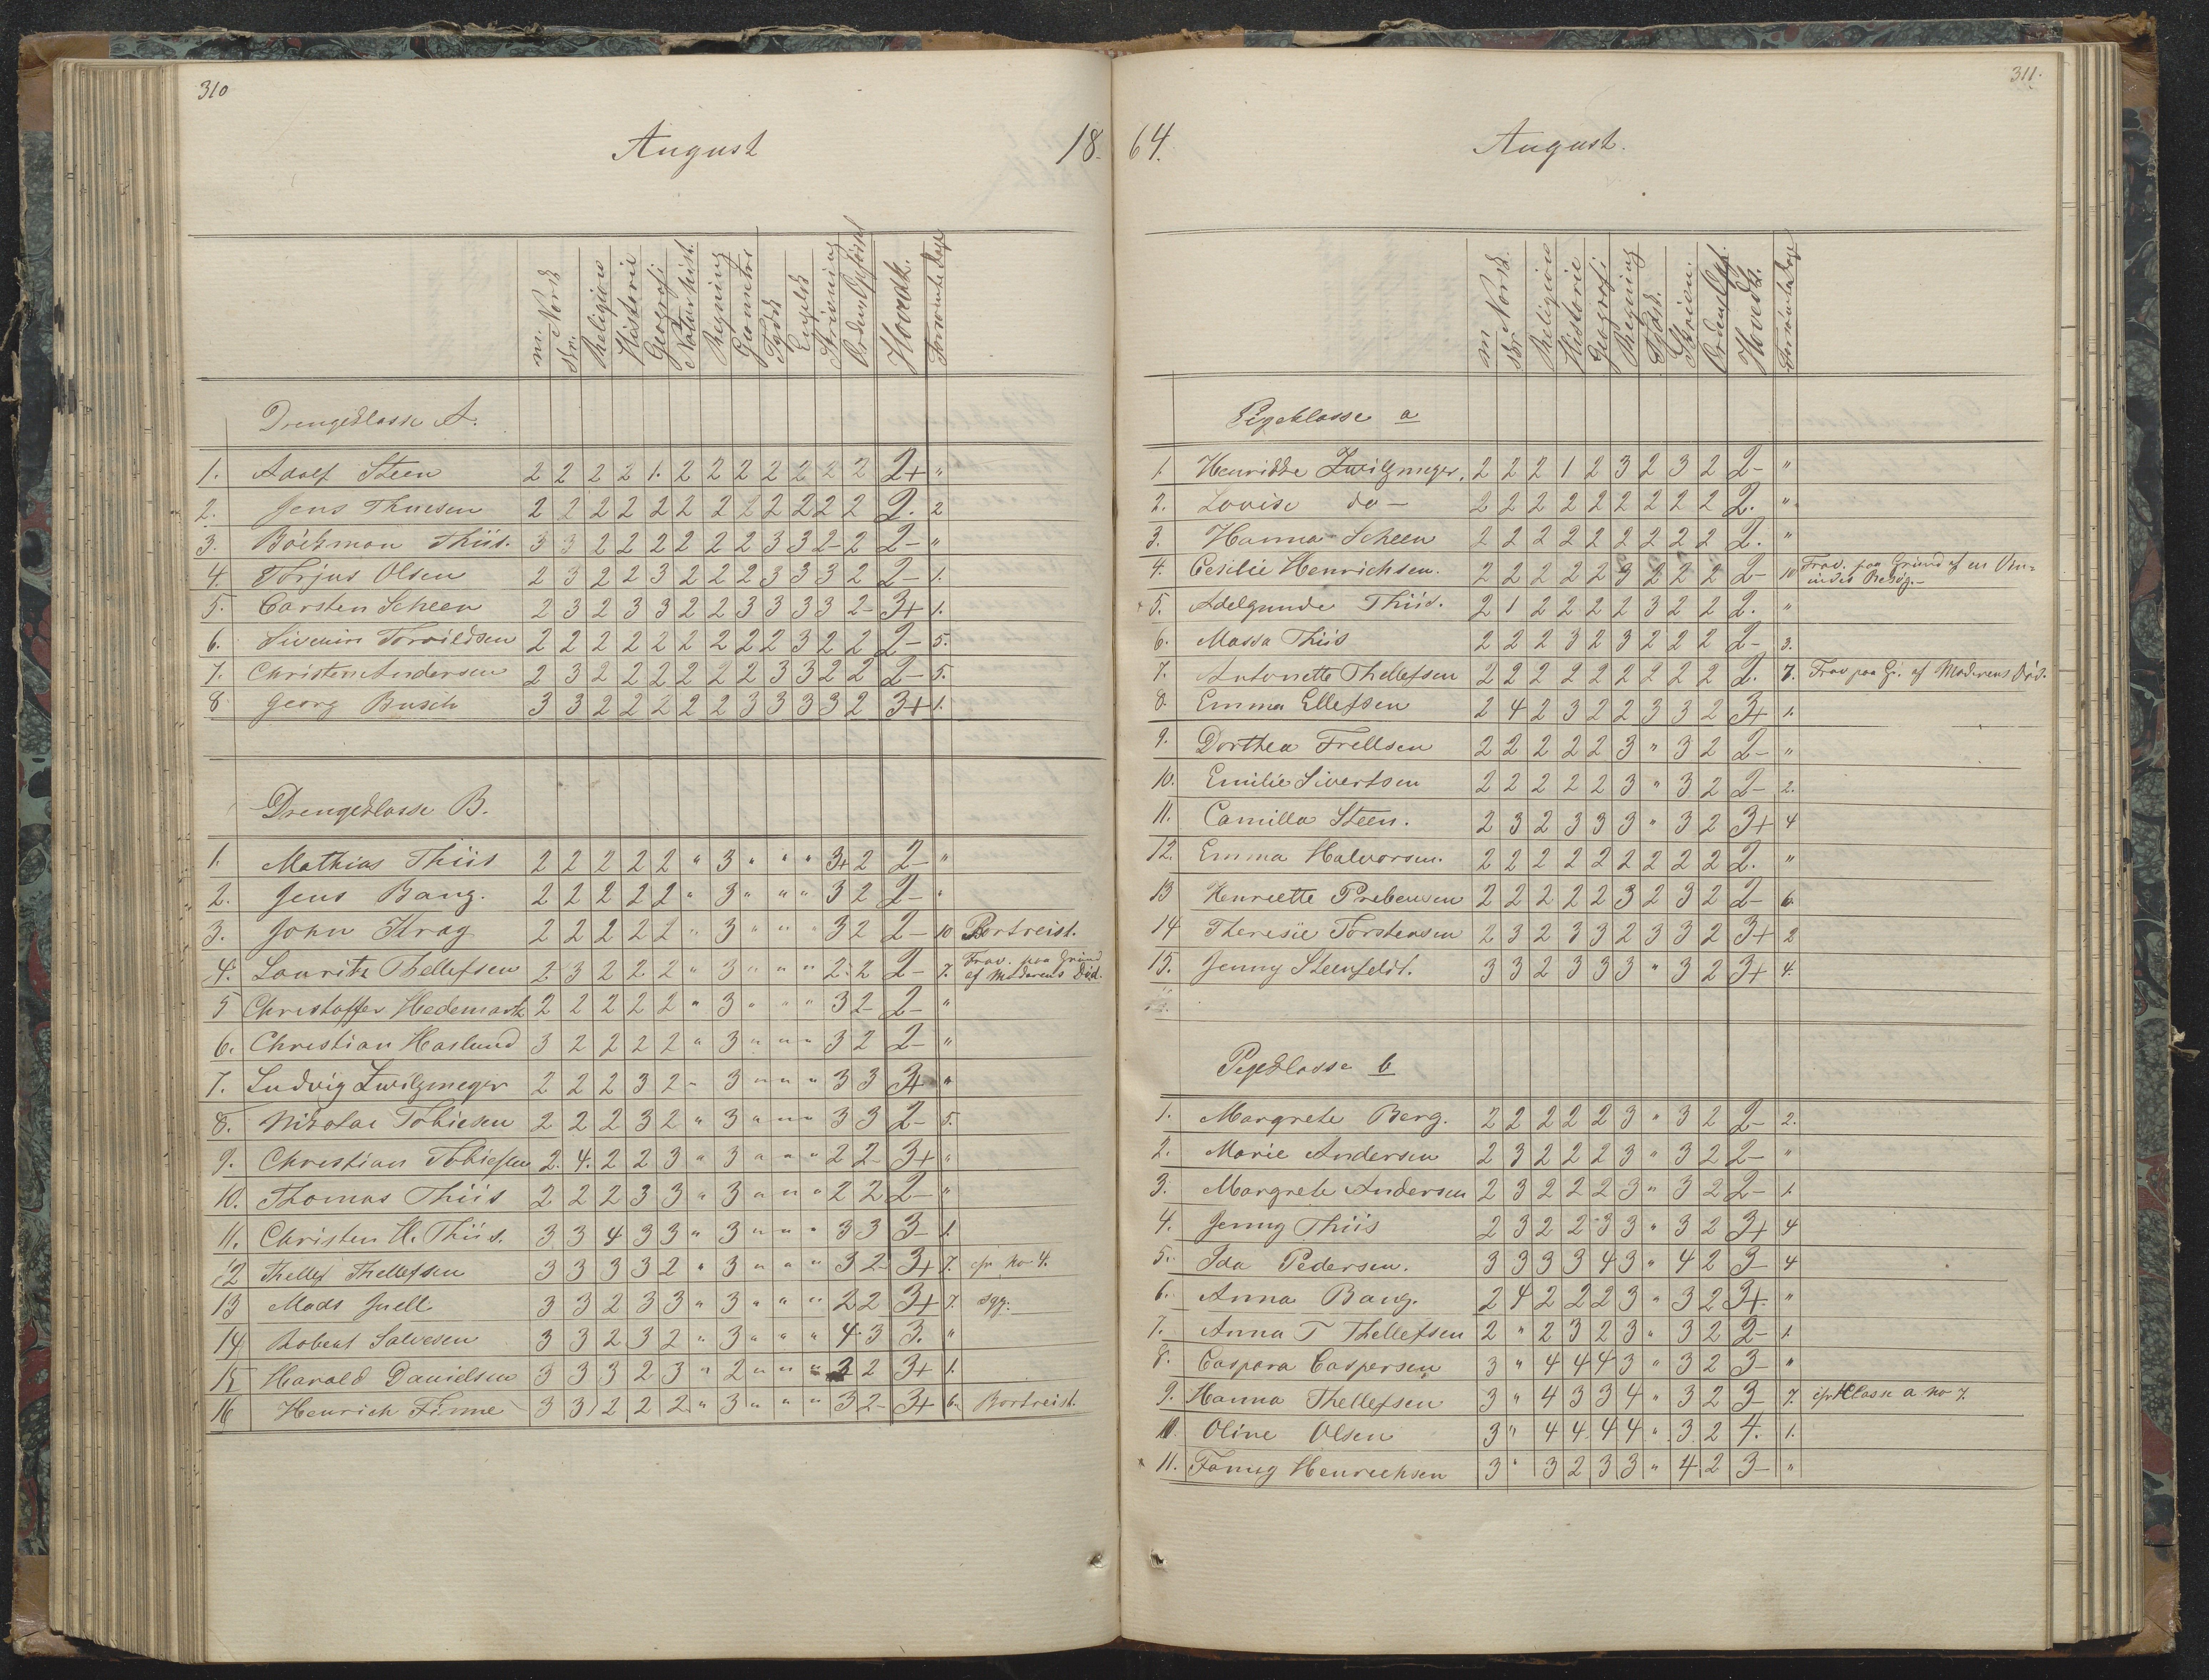 310
August 18
m. Norsk skr. Religion Historie Geografi Naturhist. Regning Geometri Tydsk Engelsk Skrivning Orden Hovedk. Forsømte Dage
Drengeklasse A.
1. Adolf Steen 2 2 2 2 1. 2 2 2 2 2 2 2 2+ "
2. Jens Thuesen 2 2 2 2 2 2 2 2 2 2 2 2 2. 2
3. Böckman Thiis. 3 3 2 2 2 2 2 2 3 3 2- 2 2- "
4. Torjus Olsen 2 3 2 2 3 2 2 2 3 3 3 2 2- 1.
5. Carsten Scheen 2 3 2 3 3 2 2 3 3 3 3 2- 3+ 1.
6. Siverin Torvildsen 2 2 2 2 2 2 2 2 2 3 2 2 2- 5.
7. Christen Andersen 2 3 2 2 2 2 2 2 3 3 2 2 2- 5.
8 Georg Busch 3 3 2 2 2 2 2 3 3 3 3 2 3+ 1.
Drengeklasse B.
1. Mathias Thiis 2 2 2 2 2 " 3 " " " 3+ 2 2- "
2. Jens Bang. 2 2 2 2 2 " 3 " " " 3 2 2- "
3. John Krag 2 2 2 2 2 " 3 " " " 3 2 2- 10 Bortreist.
4. Lauritz Thellefsen 2 3 2 2 2 " 3 " " " 2- 2 2- 7. Frav. paa Grund
af Moderens Død.
5 Christoffer Hedemark 2 2 2 2 2 " 3 " " " 3 2- 2- "
6. Christian Haslund 3 2 2 2 2 " 3 " " " 3 2 2- "
7. Ludvig Zwilgmeyer 2 2 2 3 2 " 3 " " " 3 3 3+ "
8. Nikolai Tobiesen 2 2 2 3 2 " 3 " " " 3 3 2- 5.
9. Christian Tobiesen 2. 4. 2 2 3 " 3 " " " 2 2- 3+ "
10. Thomas Thiis 2 2 2 3 3 " 3 " " " 2 2 2- "
11. Christen H. Thiis. 3 3 4 3 3 " 3 " " " 3 3 3- 1.
12 Thellef Thellefsen 3 3 3 3 2 " 3 " " " 3 2- 3+ 7. cfr No 4.
13 Mads Juell 3 3 2 3 3 " 3 " " " 2 2 3+ 7. syg.
14 Robert Salvesen 3 3 2 3 2 " 3 " " " 4 3 3. "
15 Harald Danielsen 3 3 3 2 3 " 2 " " " 2 2 3+ 1.
16 Henrich Finne 3 3 2 2 2 " 3 " " " 3 2- 3+ 6. Bortreist.
311.
64. August.
m Norsk. skr Religion Historie Geografi Regning Tydsk. Skrivn. Orden Hovedk. Forsømte Dage
Pigeklasse a
1. Henrikke Zwilgmeyer. 2 2 2 1 2 3 2 3 2 2- "
2. Lovise do - 2 2 2 2 2 2 2 2 2 2. "
3. Hanna Scheen 2 2 2 2 2 2 2 2 2 2. "
4. Cesilie Henrichsen. 2 2 2 2 2 3 2 2 2 2- 10 Frav. paa Grund af en Ven-
indes Besøg.
5. Adelgunde Thiis. 2 1 2 2 2 2 3 2 2 2. "
6. Massa Thiis 2 2 2 3 2 3 2 2 2 2- 3.
7. Antonette Thellefsen 2 2 2 2 2 2 2 2 2 2. 7. Frav paa Gr. af Moderens Død.
8. Emma Ellefsen 2 4 2 3 2 2 3 3 2 3+ 1.
9. Dorthea Frellsen 2 2 2 2 2 3 " 3 2 2- "
10. Emilie Sivertsen 2 2 2 2 2 3 " 3 2 2- 2.
11. Camilla Steen. 2 3 2 3 3 3 " 3 2 3+ 4
12. Emma Halvorsen. 2 2 2 2 2 2 2 2 2 2. "
13 Henriette Prebensen 2 2 2 2 2 3 2 3 2 2- 6.
14 Theresie Torstensen 2 3 2 3 3 2 3 3 2 3+ 2
15. Jenny Steenfeldt. 3 3 2 3 3 3 " 3 2 3+ 4.
Pigeklasse b
1. Margrete Berg. 2 2 2 2 2 3 " 3 2 2- 2.
2. Marie Andersen 2 3 2 2 2 3 " 3 2 2- "
3. Margrete Andersen 2 3 2 2 2 3 " 3 2 2- 1.
4. Jenny Thiis 2 3 2 2 3 3 " 3 2 3+ 4
5. Ida Pedersen. 3 3 3 3 4 3 " 4 2 3- 4
6. Anna Bang. 2 4 2 2 2 3 " 3 2 3+. "
7. Anna T Thellefsen 2 " 2 3 2 3 " 3 2 2- 1.
8. Caspara Caspersen 3 " 4 4 4 3 " 3 2 3- "
9. Hanna Thellefsen 3 " 4 3 3 4 " 3 2 3- 7. cfr Klasse a No 7.
10 Oline Olsen 3 " 4 4 4 4 " 3 2 4. 1.
11. Fanny Henrichsen 3 " 3 2 3 3 " 4 2 3- "